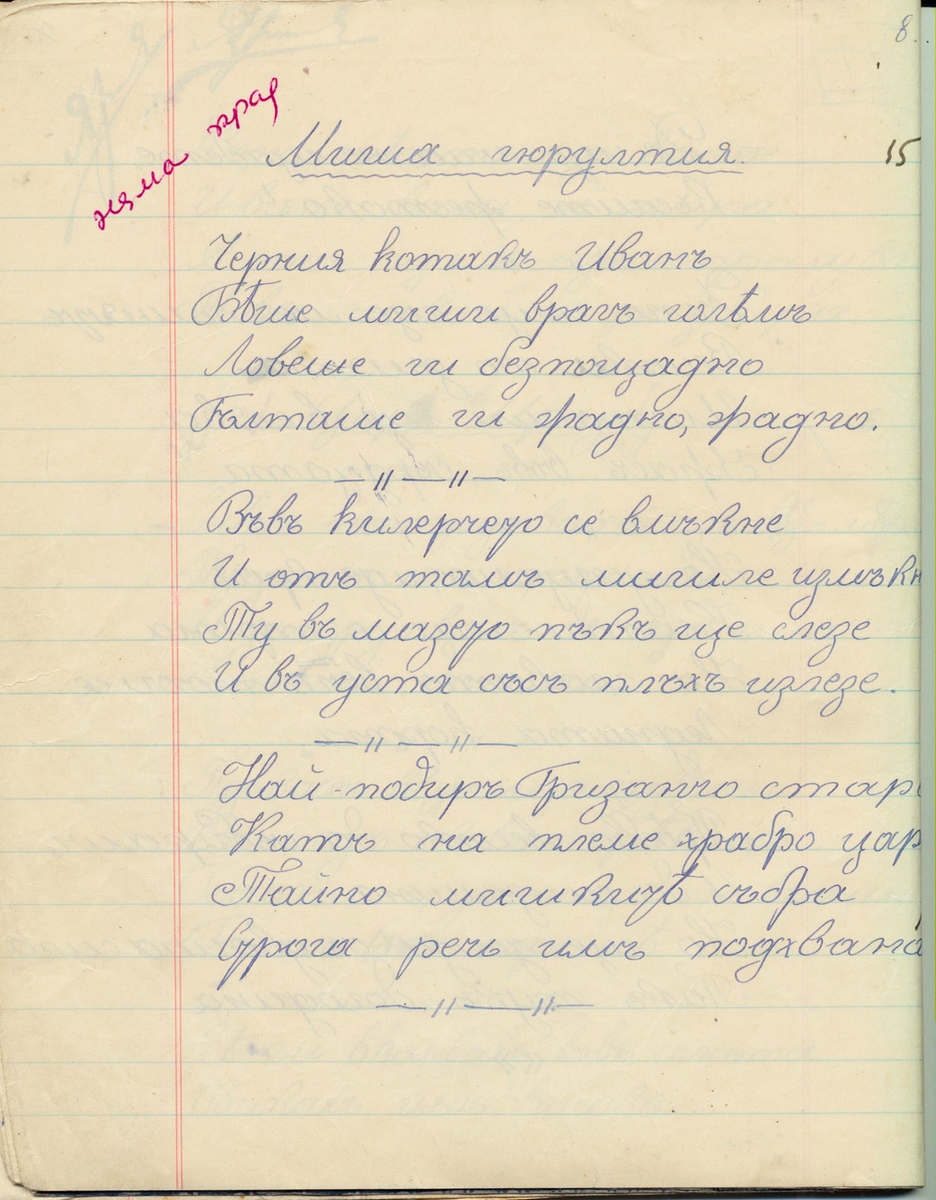 8.
няма прав
Мишиа гюрултия.
15
Черния котакъ Иванъ
Бѣше миши врагъ голѣмъ
Ловеше ги безпощадно
Гълташе ги жрадно, жрадно.
—〃—〃—
Въвъ килерчето се вмъкне
И отъ тамъ мишле измъкн
Ту въ мазето пъкъ ще слезе
И въ уста съсъ плъхъ излезе.
—〃—〃—
Най-подиръ Гризанчо стар
Катъ на племе храбро цар
Тайно мишкитѣ събра
Строга речь имъ подхвана
—〃—〃—